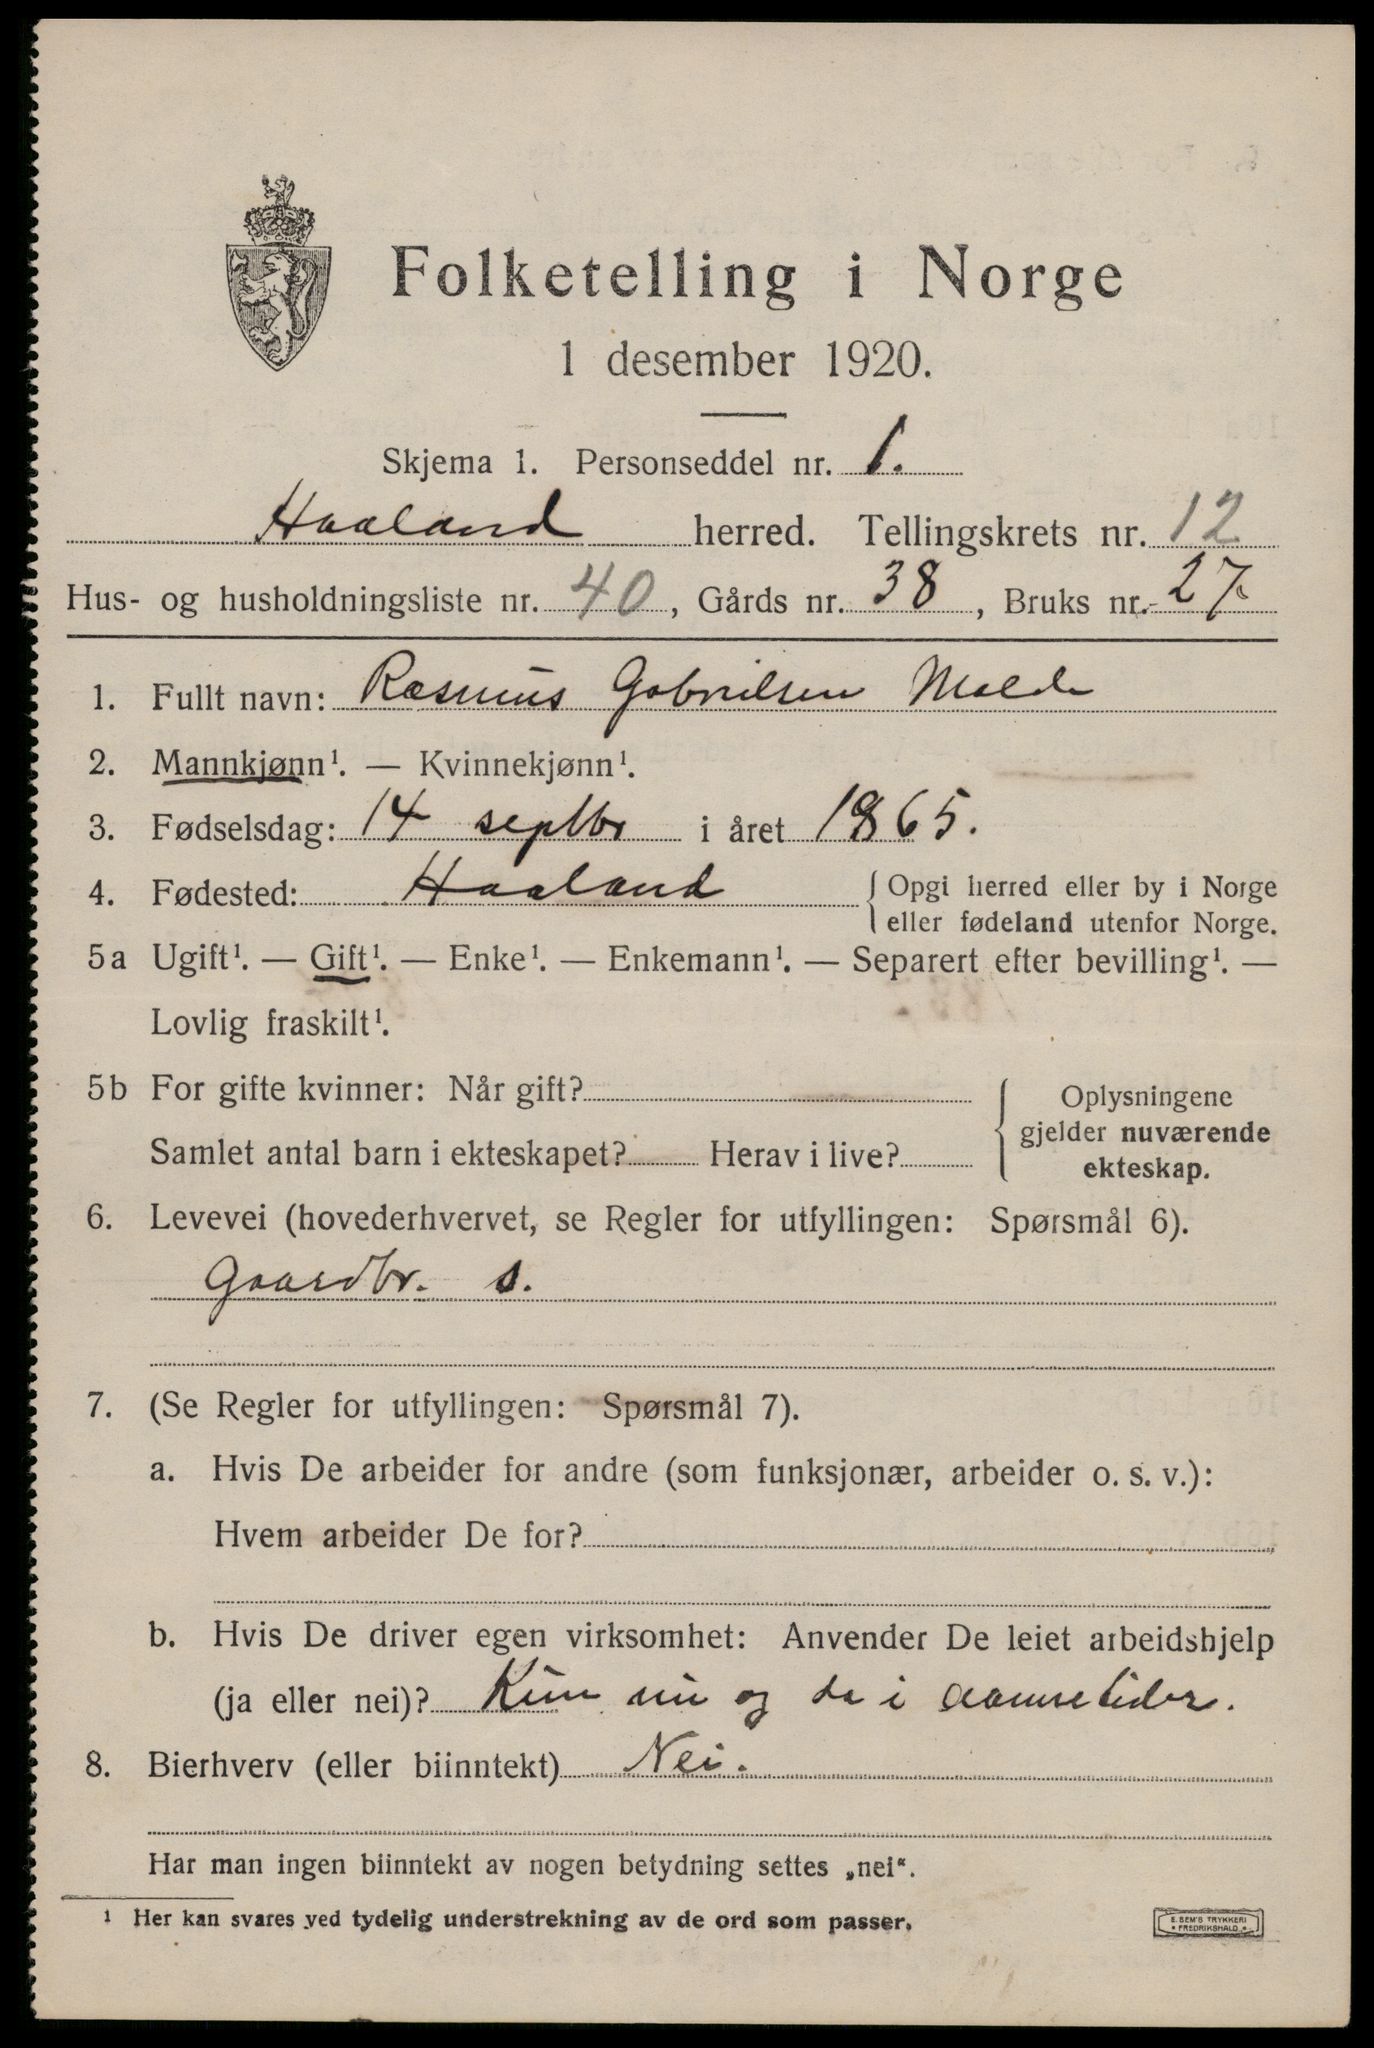 Folketelling i Norge
1 desember 1920.
Skjema 1. Personseddel nr. 1.
Haaland herred. Tellingskrets nr. 12
Hus- og husholdningsliste nr. 40, Gårds nr. 38, Bruks nr. 27
1. Fullt navn: Rasmus Gabrielsen Malde
2. Mannkjønn¹. — Kvinnekjønn¹.
3. Fødselsdag: 14 septbr i året 1865.
4. Fødested: Haaland { Opgi herred eller by i Norge
eller fødeland utenfor Norge.
5a Ugift¹. — Gift¹. — Enke¹. — Enkemann¹. — Separert efter bevilling¹. —
Lovlig fraskilt¹.
5b For gifte kvinner: Når gift?
Samlet antal barn i ekteskapet? Herav i live?
Oplysningene
gjelder nuværende
ekteskap.
6. Levevei (hovederhvervet, se Regler for utfyllingen: Spørsmål 6).
Gaardbr. s.
7. (Se Regler for utfyllingen: Spørsmål 7).
a. Hvis De arbeider for andre (som funksjonær, arbeider o. s. v.):
Hvem arbeider De for?
b. Hvis De driver egen virksomhet: Anvender De leiet arbeidshjelp
(ja eller nei)? Kun nu og da i aannetider.
8. Bierhverv (eller biinntekt) Nei.
Har man ingen biinntekt av nogen betydning settes „nei“.
¹ Her kan svares ved tydelig understrekning av de ord som passer.
E. SEM'S TRYKKERI
• FREDRIKSHALD •